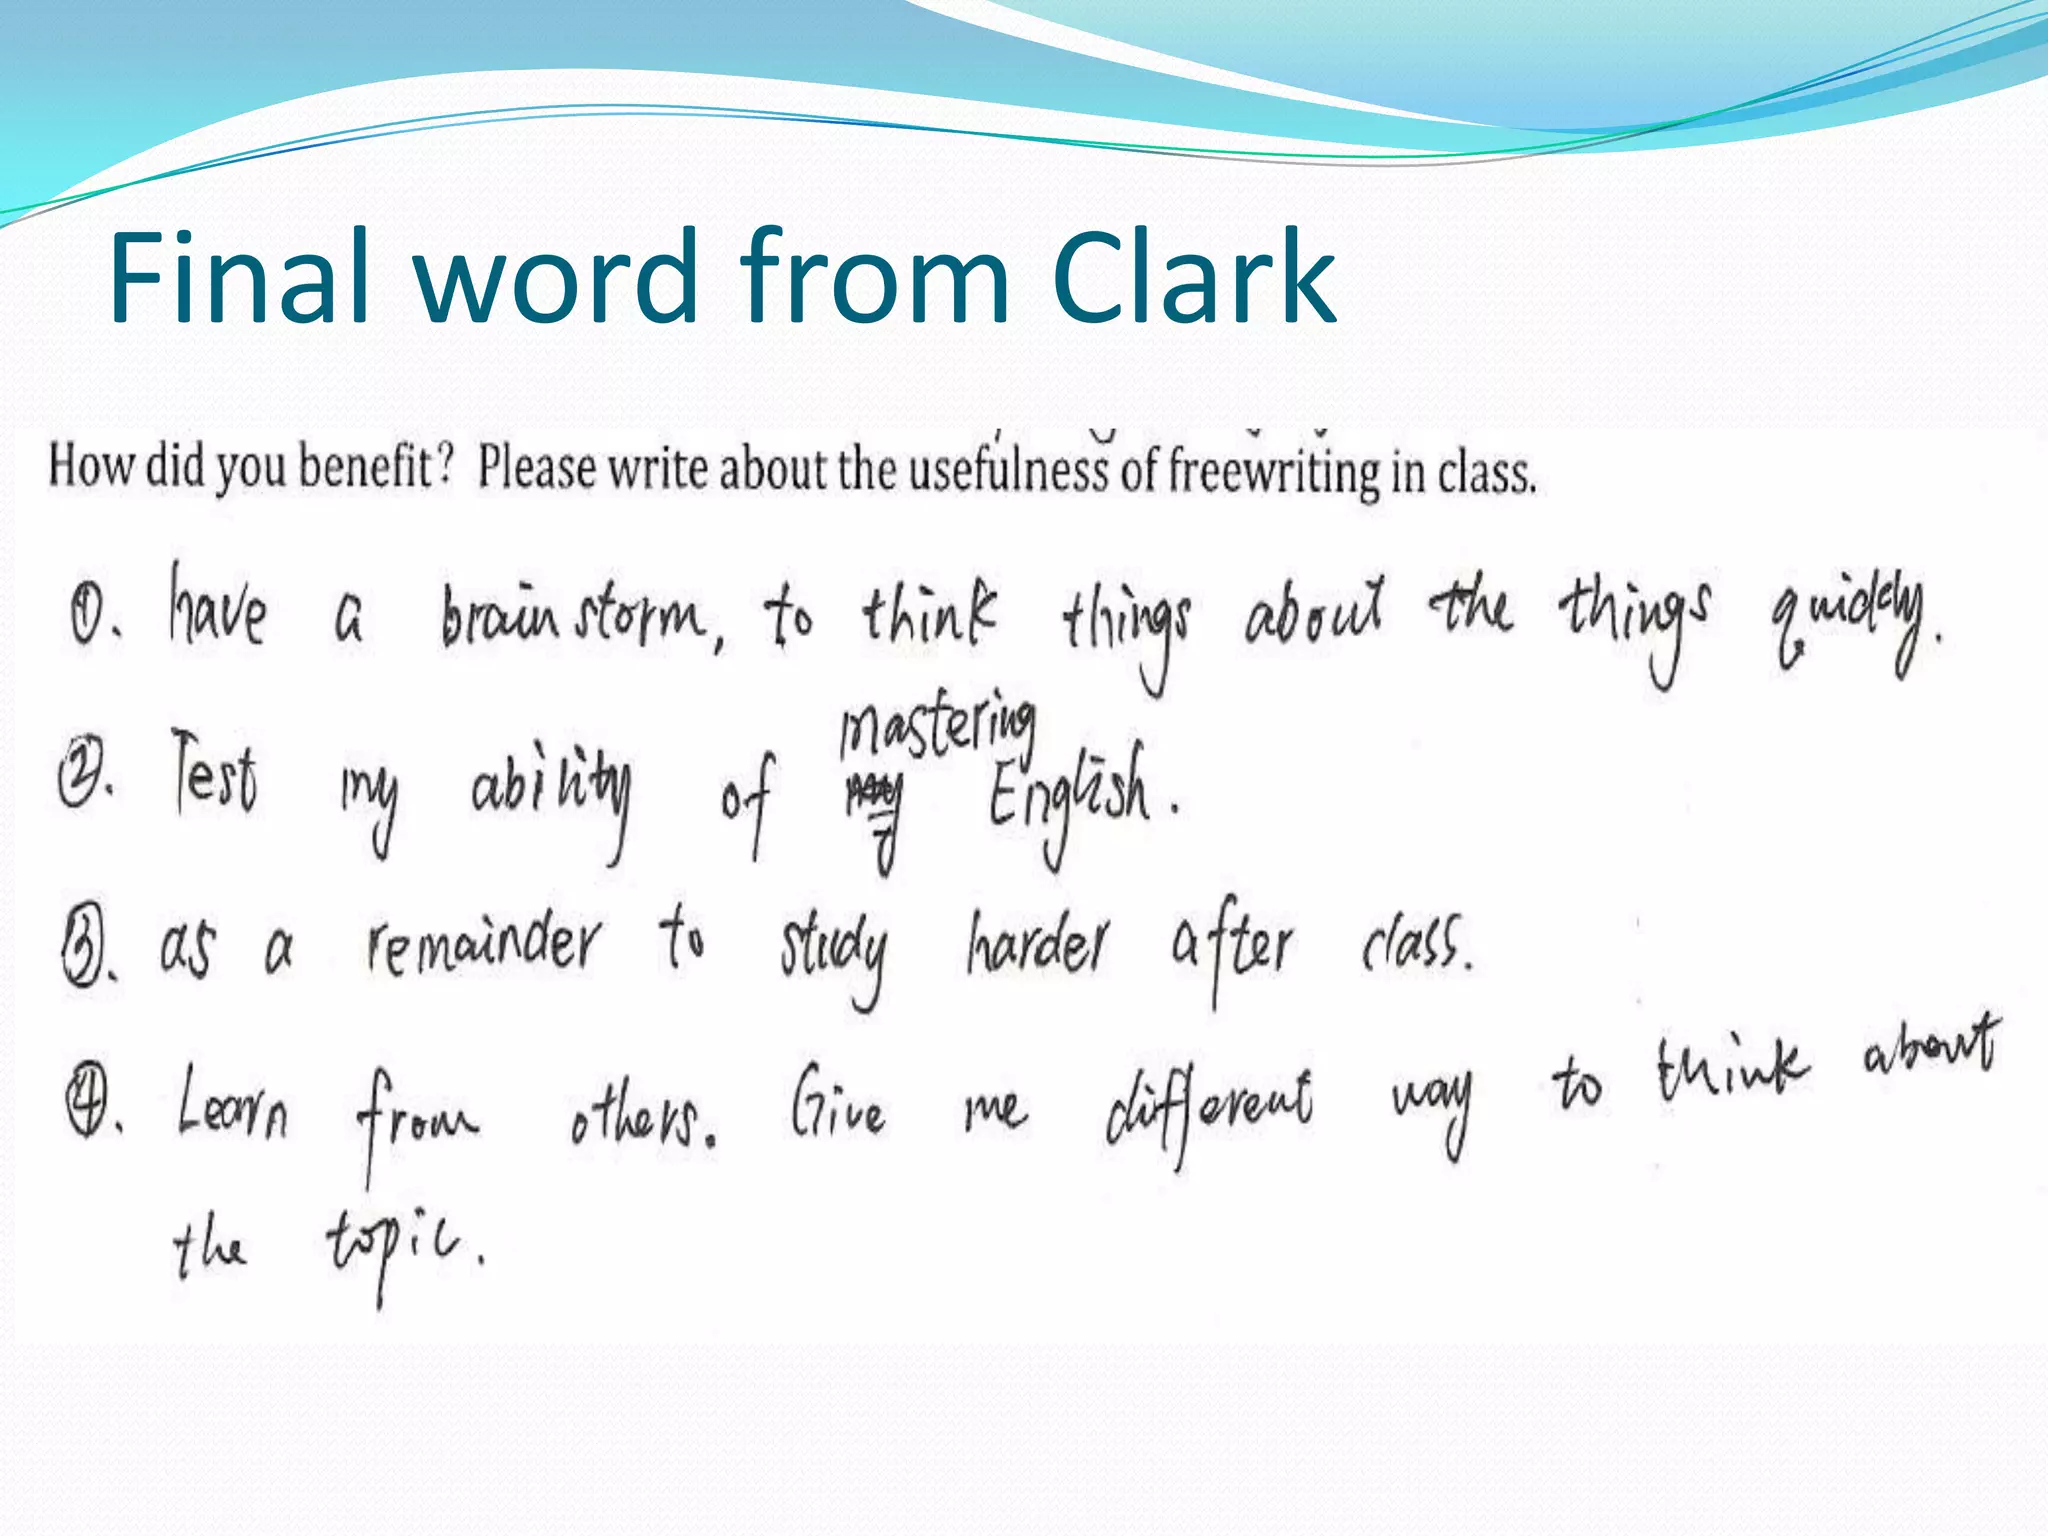 Final word from Clark
How did you benefit? Please write about the usefulness of freewriting in class.
①. have a brain storm, to think things about the things quickly.
mastering
②. Test my ability of English.
③. as a remainder to study harder after class.
④. Learn from others. Give me different way to think about
the topic.